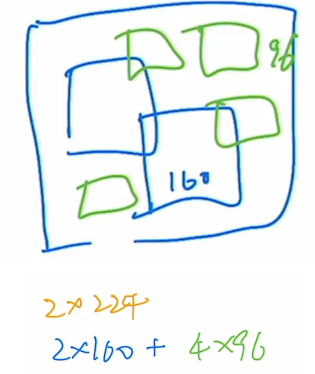 96
160
2×224
2×160 + 4×96